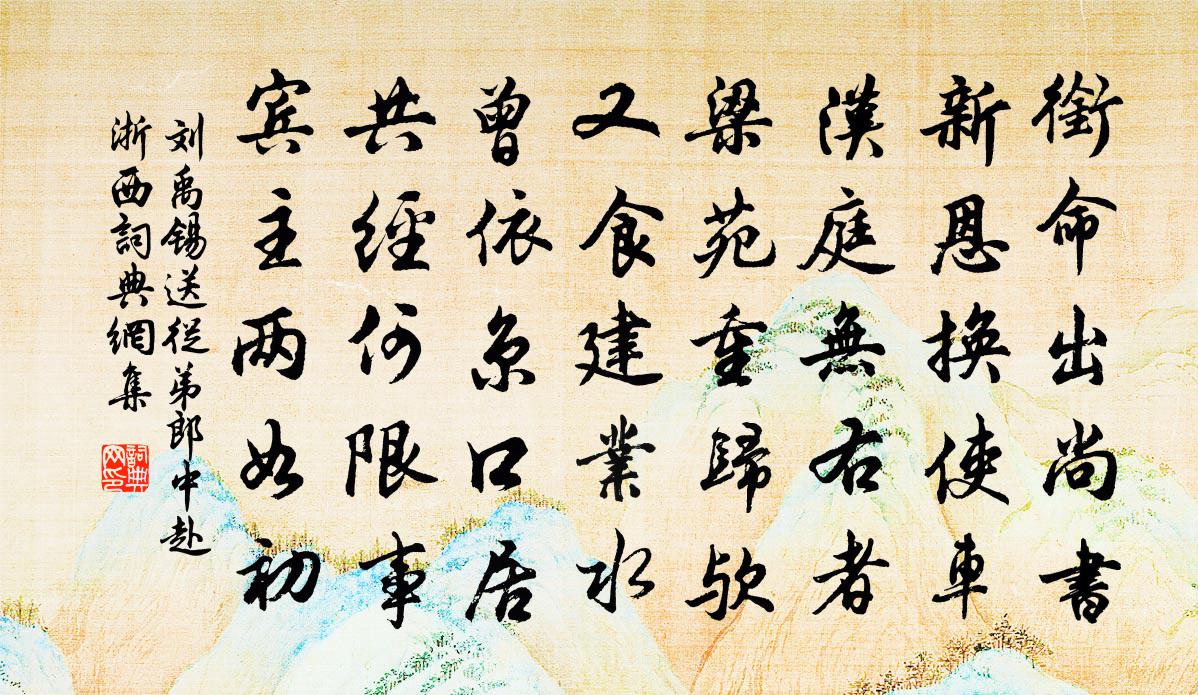 銜命出尚書
新恩換使車
漢庭無右者
梁苑重歸歟
又食建業水
曾依京口居
共經何限事
宾主两如初
刘禹锡送從弟郎中赴
浙西詞典網集
詞典
网印